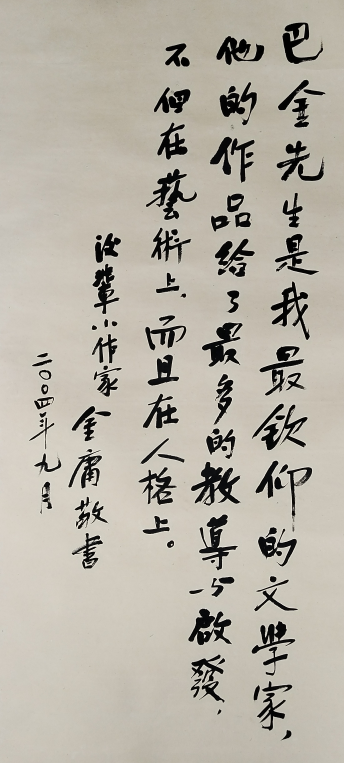 巴金先生是我最钦仰的文學家，
他的作品给了最多的教導与啟發，
不但在藝術上，而且在人格上。
後輩小作家 金庸敬書
二〇〇四年九月